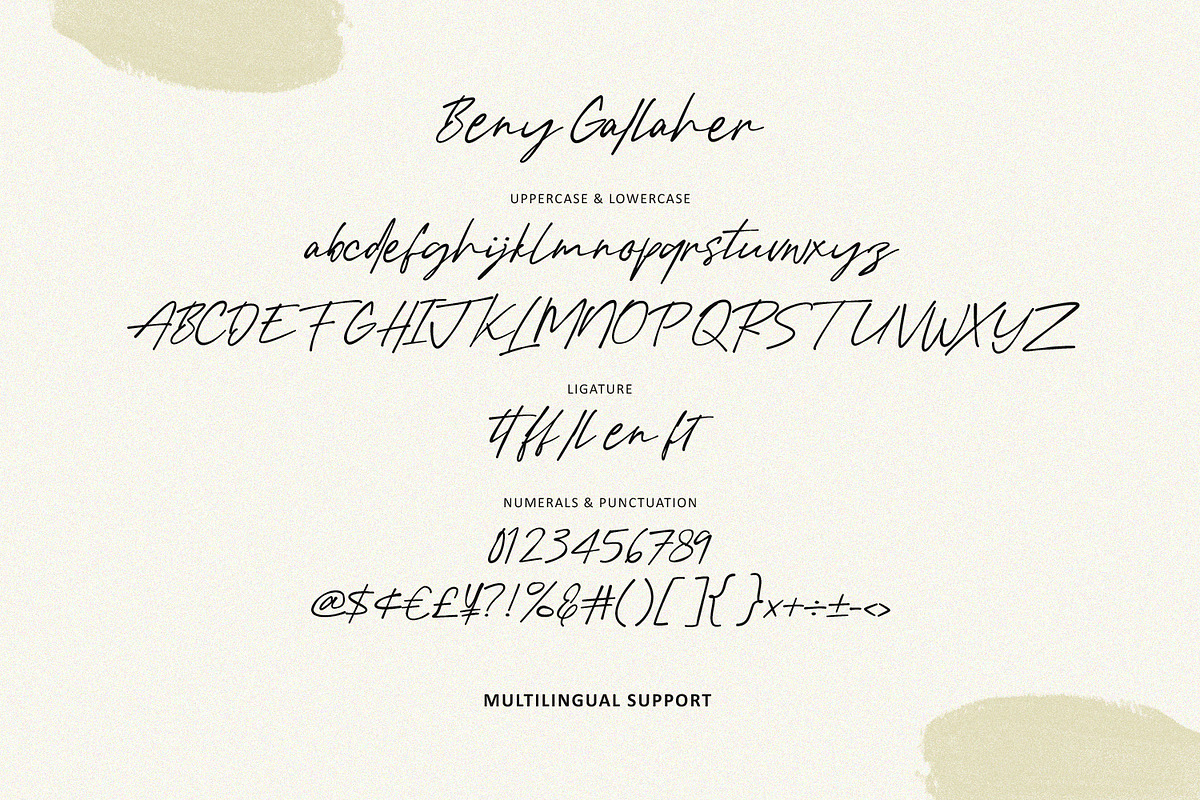 Beny Gallaher
UPPERCASE & LOWERCASE
abcdefghijklmnopqrstuvwxyz
ABCDEFGHIJKLMNOPQRSTUVWXYZ
LIGATURE
tt ff ll en ft
NUMERALS & PUNCTUATION
0123456789
@$¢€£¥?!%&#()[]{}×+÷±-<>
MULTILINGUAL SUPPORT